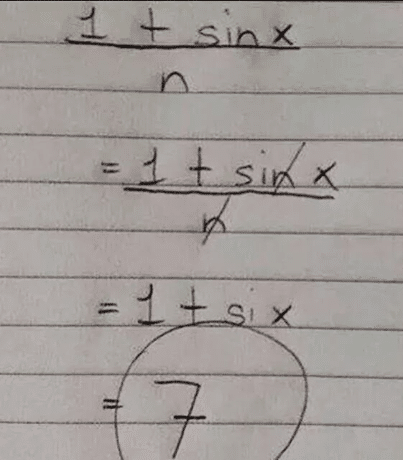 1 + sin x
n
= 1 + sin x
n
= 1 + six
= 7